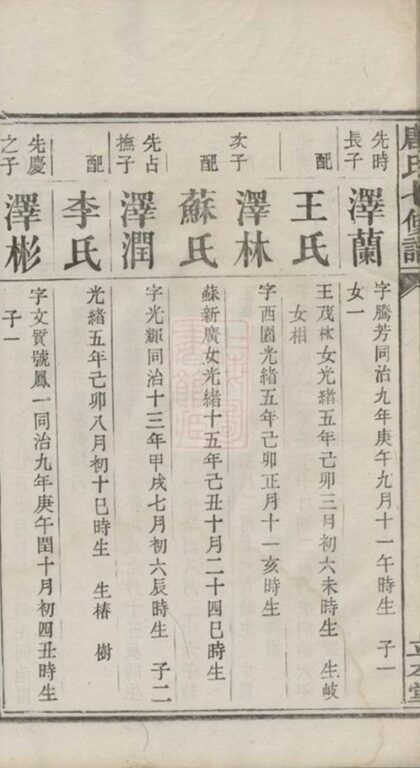 唐氏七修譜
立本堂
先時長子
澤蘭
字騰芳同治九年庚午九月十一午時生 子一
女一
配
王氏
王茂林女光緒五年己卯三月初六未時生 生岐
女相
次子
澤林
字西園光緒五年己卯正月十一亥時生
配
蘇氏
蘇新廣女光緒十五年己丑十月二十四巳時生
先占撫子
澤潤
字光輝同治十三年甲戌七月初六辰時生 子二
配
李氏
光緒五年己卯八月初十巳時生 生椿 樹
先慶之子
澤彬
字文質號鳳一同治九年庚午閏十月初四丑時生
子一